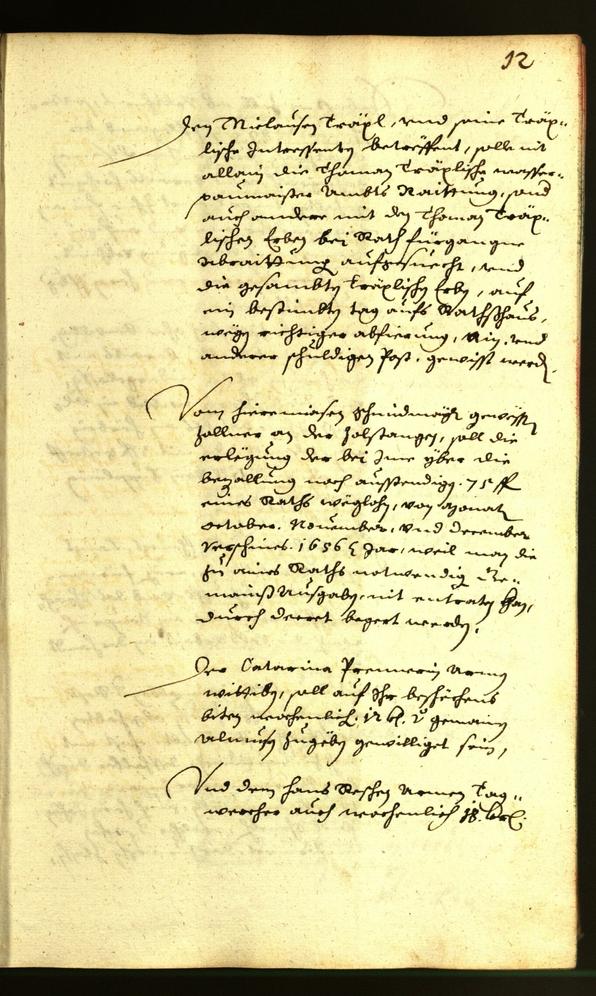 12
den Niclausen Träxl, vnd seine Träx„
lische Intressenten betreffent, solle nit
allain die Thoman Träxlische wasser„
paumaister Ambts Raittung, sond
auch andere mit den Thoman Träx„
lischen Erben bei Rath fürgangne
Abraittung aufgesuecht, vnd
die gesambten Träxlischen Erben, auf
ein bestimbten tag aufs Rathshaus,
wegen richtiger abfierung, vnd
anderer schuldigen Post, gewisst werden.
Vom Hieremiasen Schmidmayr gewesten
Zollner an der Zolstangen, soll die
erlegung der bei Ime yber die
bezallung noch aussendigen 75 ff
eines Raths weglohn, von Monat
October. November, vnd December
verschines 1656 Jar, weil man die
zu aines Raths notwendig Ge„
mainss Ausgaben, nit entraten khan,
durch decret begert werden.
Der Catarina Premmerin Armen
wittiben, soll auf Ihr beschechens
biten wochenlich. 12 kr. gemain
Almusen zugeben gewilliget sein,
Vnd dem Hans Reschen Armen Tag„
wercher auch wochenlich 18. kr.